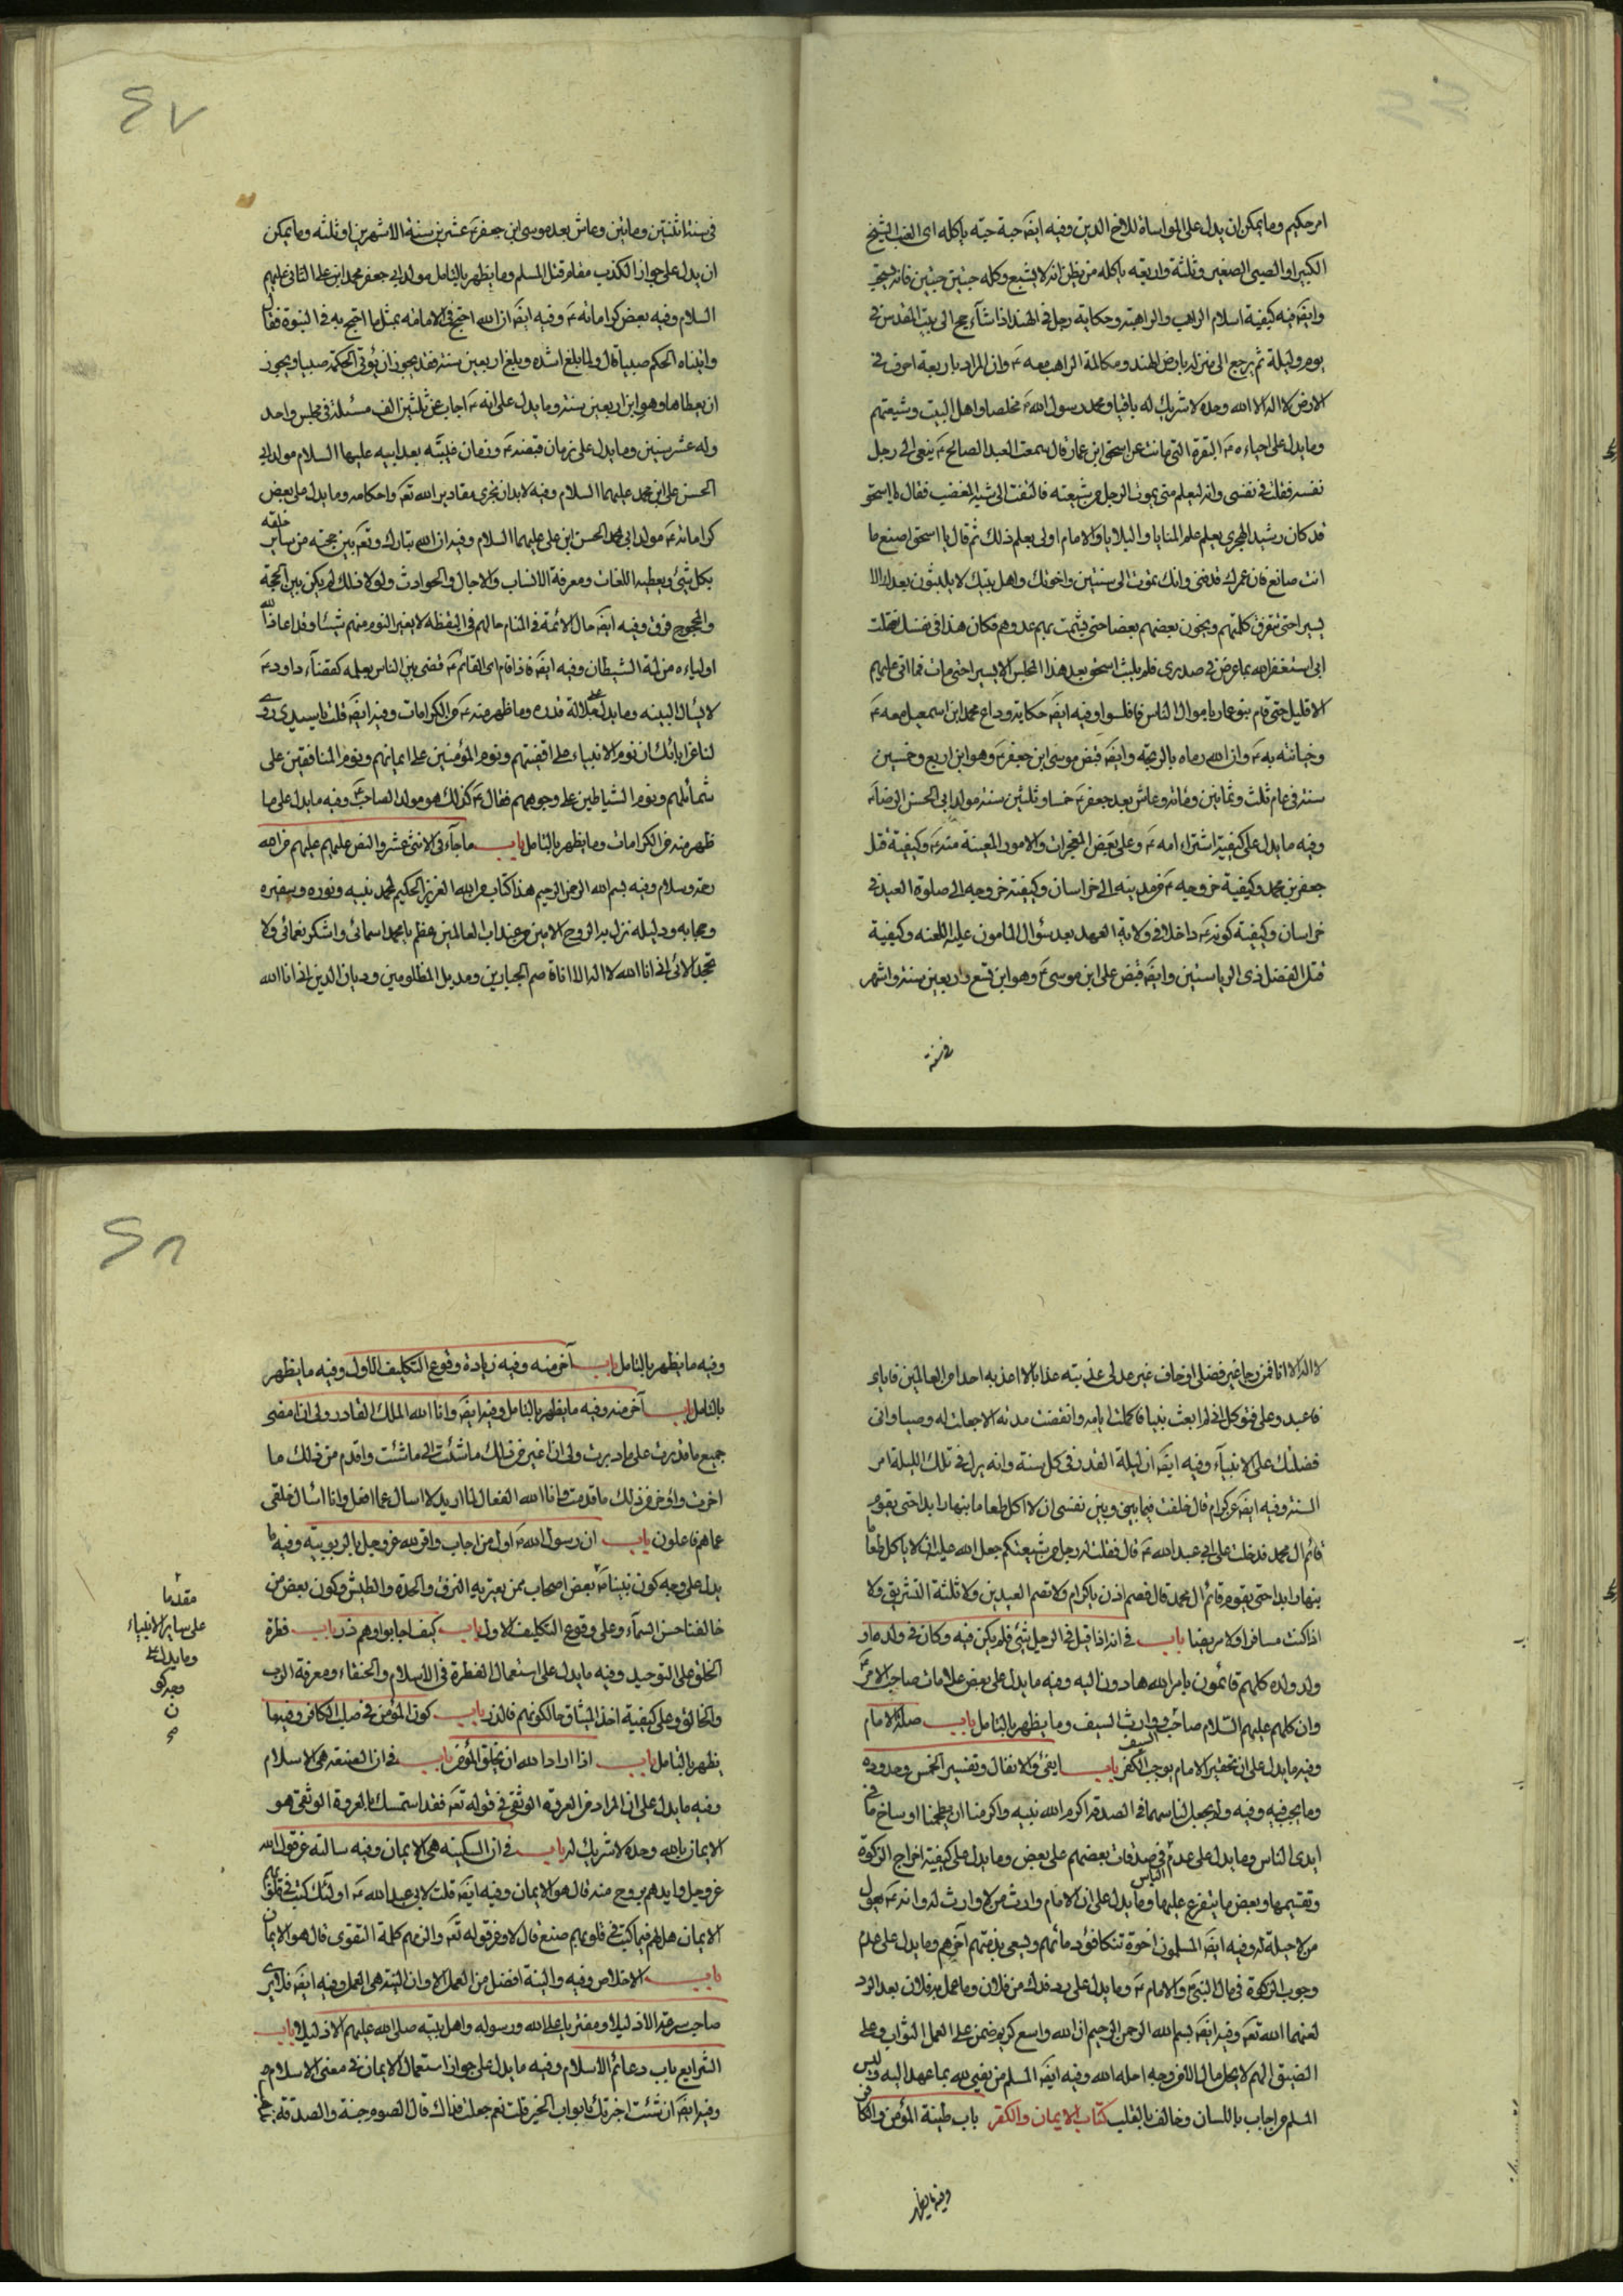 امر حكيم وما يمكن ان يدل على المواساة للاخ الدين وفيه ايضَ حبة حبة ياكله اى العنب الشيخ
الكبير او الصبى الصغير وثلثة واربعة ياكله من يظن انه لا يشبع وكله حبتين حبتين فانه يستحب
وايضَ فيه كيفية اسلام الراهب والراهبة وحكاية رجل فى الهند اذا شآء حج الى بيت المقدس فى
يوم وليلة ثم يرجع الى منزله بارض الهند ومكالمة الراهب معه ع وان المراد باربعة احرف فى
الارض لا اله الا الله وحده لا شريك له باقيا ومحمد رسول الله ص مخلصا واهل البيت وشيعتهم
وما يدل على احياءه ع البقرة التى ماتت عن اسحق ابن عمار قال سمعت العبد الصالح ع ينعى الى رجل
نفسه فقلت فى نفسى وانه ليعلم متى يموت الرجل من شيعته فالتفت الى شبه الغضب فقال يا اسحق
قد كان رشيد الهجرى يعلم علم المنايا والبلايا والامام اولى بعلم ذلك ثم قال يا اسحق اصنع ما
انت صانع فان عمرك قد فنى وانك تموت الى سنتين واخوتك واهل بيتك لا يلبثون بعدك الا
يسيرا حتى تتفرق كلمتهم ويخون بعضهم بعضا حتى يشمت بهم عدوهم فكان هذا فى نفسك فقلت
انى استغفر الله بما عرض فى صدرى فلم يلبث اسحق بعد هذا المجلس الا يسيرا حتى مات فما اتى عليهم
الا قليل حتى قام بنو عمار باموال الناس فافلسوا وفيه ايضَ حكاية وداع محمد ابن اسمعيل معه ع
وخيانته به ع وان الله رماه بالذبحة وايضَ قبض موسى ابن جعفر ع وهو ابن اربع وخمسين
سنة فى عام ثلث وثمانين ومائة وعاش بعد جعفر ع خمسا وثلثين سنة مولد ابى الحسن الرضا ع
وفيه ما يدل على كيفية اشتراء امه ع وعلى بعض المعجزات والامور المغيبة منه ع وكيفية قتل
جعفر بن محمد وكيفية خروجه ع من مدينه الى خراسان وكيفية خروجه الى صلوة العيد فى
خراسان وكيفية كونه ع داخلا فى ولاية العهد بعد سؤال المامون عليه اللعنه وكيفية
قتل الفضل ذى الرياستين وايضَ قبض على ابن موسى ع وهو ابن تسع واربعين سنة واشهر
فى سنة
فى سنة اثنتين ومائتين وعاش بعد موسى ابن جعفر ع عشرين سنة الا شهرين او ثلثه وما يمكن
ان يدل على جواز الكذب مقام قتل المسلم وما يظهر بالتامل مولد ابى جعفر محمد ابن على الثانى عليهم
السلام وفيه بعض كراماته ع وفيه ايضَ ان الله احتج فى الامامه بمثل ما احتج به فى النبوة فقال
واتيناه الحكم صبيا قال ولما بلغ اشده وبلغ اربعين سنة فقد يجوز ان يؤتى الحكمة صبيا ويجوز
ان يعطاها وهو ابن اربعين سنة وما يدل على انه ع اجاب عن ثلثين الف مسئلة فى مجلس واحد
وله عشر سنين وما يدل على زمان قبضه ع وزمان فيئه بعد ابيه عليهما السلام مولد ابى
الحسن على ابن محمد عليهما السلام وفيه لا بد ان تجرى مقادير الله تعَ واحكامه وما يدل على بعض
كراماته ع مولد ابى محمد الحسن ابن على عليهما السلام وفيه ان الله تبارك وتعَ بين حجته من سائر خلقه
بكل شئ ويعطيه اللغات ومعرفة الانساب والاجال والحوادث ولولا ذلك لم يكن بين الحجة
والمحجوج فرق وفيه ايضَ حال الائمة فى المنام حالهم فى اليقظة لا يغير النوم منهم شيئا وقد اعاذ الله
اولياءه من لمة الشيطان وفيه ايضَ فاذا قام اى القائم ع قضى بين الناس بعلمه كقضآء داود ع
لا يسال البينه وما يدل على جلالة قدره وما ظهر منه ع من الكرامات وفيه ايضَ قلت يا سيدى روى
لنا عن ابائك ان نوم الانبياء على اقفيتهم ونوم المؤمنين على ايمانهم ونوم المنافقين على
شمائلهم ونوم الشياطين على وجوههم فقال ع كذلك هو مولد الصاحب ع وفيه ما يدل على ما
ظهر منه من الكرامات وما يظهر بالتامل باب ما جآء فى الاثنى عشر والنص عليهم عليهم من الله
رحمة وسلام وفيه بسم الله الرحمن الرحيم هذا كتاب من الله العزيز الحكيم لمحمد نبيه ونوره وسفيره
وحجابه ودليله نزل به الروح الامين من عند رب العالمين عظم يا محمد اسمائى واشكر نعمائى ولا
تجحد الائى انى انا الله لا اله الا انا قاصم الجبارين ومديل المظلومين وديان الدين انى انا الله
لا اله الا انا فمن رجا غير فضلى او خاف غير عدلى عذبته عذابا لا اعذبه احدا من العالمين فاياى
فاعبد وعلى فتوكل انى لم ابعث نبيا فاكملت ايامه وانقضت مدته الا جعلت له وصيا وانى
فضلتك على الانبيآء وفيه ايضَ ان ليلة القدر فى كل سنة وانه ينزل فى تلك الليلة امر
السنة وفيه ايضَ عن كرام قال حلفت فيما بينى وبين نفسى ان لا اكل طعاما بنهار ابدا حتى يقوم
قائم ال محمد فدخلت على ابى عبد الله ع قال فقلت له رجل من شيعتكم جعل الله عليه ان لا ياكل طعاما
بنهار ابدا حتى يقوم قائم ال محمد قال فصم اذن يا كرام ولا تصم العيدين ولا ثلثة التشريق ولا
اذا كنت مسافرا ولا مريضا باب فى انه اذا قيل فى الرجل شئ فلم يكن فيه وكان فى ولده او
ولد ولده كلهم قائمون بامر الله هادون اليه وفيه ما يدل على بعض علامات صاحب الامر ع
وان كلهم عليهم السّلام صاحب السيف ووارث السيف وما يظهر بالتامل باب صلة الامام
وفيه ما يدل على ان تحقير الامام يوجب الكفر باب الفئ والانفال وتفسير الخمس وحدوده
وما يجب فيه وفيه ولم يجعل لنا سهما فى الصدقة اكرم الله نبيه واكرمنا ان يطعمنا اوساخ ما فى
ايدى الناس وما يدل على عدم فى صدقات بعضهم على بعض وما يدل على كيفية اخراج الزكوة
وتقسيمها وبعض ما يتفرع عليها وما يدل على ان الامام وارث من لا وارث له وانه ع يعول
من لا حيلة له وفيه ايضَ المسلمون اخوة تتكافؤ دمائهم ويسعى بذمتهم آخرهم وما يدل على عدم
وجوب الزكوة فى مال النبى ص والامام ع وما يدل على رد فدك من فلان وما عمل به فلان بعد الرد
لعنهما الله تعَ وفيه ايضَ بسم الله الرحمن الرحيم ان الله واسع كريم ضمن على العمل الثواب وعلى
الضيق الهم لا يحل مال الا من وجه احله الله وفيه ايضَ المسلم من يفى لله بما عهد اليه وليس
المسلم من اجاب باللسان وخالف بالقلب كتاب الايمان والكفر باب طينة المؤمن والكافر
وفيه ما يظهر
وفيه ما يظهر بالتامل باب آخر منه وفيه زيادة وقوع التكليف الاول وفيه ما يظهر
بالتامل باب آخر منه وفيه ما يظهر بالتامل وفيه ايضَ وانا الله الملك القادر ولى ان امضى
جميع ما قدرت على ما دبرت ولى ان اغير من ذلك ما شئت الى ما شئت واقدم من ذلك ما
اخرت واؤخر من ذلك ما قدمت وانا الله الفعال لما اريد لا اسال عما افعل وانا اسال خلقى
عما هم فاعلون باب ان رسول الله ص اول من اجاب واقر لله عز وجل بالربوبية وفيه ما
يدل على وجه كون نبينا ص بعض اصحاب ممن يعتريه النزق والحدة والطيش وكون بعض من
خالفنا حسن السمآء وعلى وقوع التكليف الاول باب كيف اجابوا وهم ذر باب فطرة
الخلق على التوحيد وفيه ما يدل على استعمال الفطرة فى الاسلام والحنفاء ومعرفة الرب
والخالق وعلى كيفية اخذ الميثاق حالكونهم فالذر باب كون المؤمن فى صلب الكافر وفيه ما
يظهر بالتامل باب اذا اراد الله ان يخلق المؤمن باب فى ان الصبغة هى الاسلام
وفيه ما يدل على ان المراد من العروة الوثقى فى قوله تعَ فقد استمسك بالعروة الوثقى هو
الايمان بالله وحده لا شريك له باب فى ان السكينه هى الايمان وفيه سالته عن قول الله
عز وجل وايدهم بروح منه قال هو الايمان وفيه ايضَ قلت لابى عبد الله ع اولئك كتب فى قلوبهم
الايمان هل لهم فيما كتب فى قلوبهم صنع قال لا وعن قوله تعَ والزمهم كلمة التقوى قال هو الايمان
باب الاخلاص وفيه والنية افضل من العمل الا وان النية هى العمل وفيه ايضَ فلا ترى
صاحب بدعة الا ذليلا ومفتريا على الله ورسوله واهل بيته صلى الله عليهم الا ذليلا باب
الشرايع باب دعائم الاسلام وفيه ما يدل على جواز استعمال الايمان فى معنى الاسلام
وفيه ايضَ ان شئت اخبرتك بابواب الخير قلت نعم جعلت فداك قال الصوم جنة والصدقة
مقدما
على ساير الانبياء
وما يدل على
وجه كو
ن